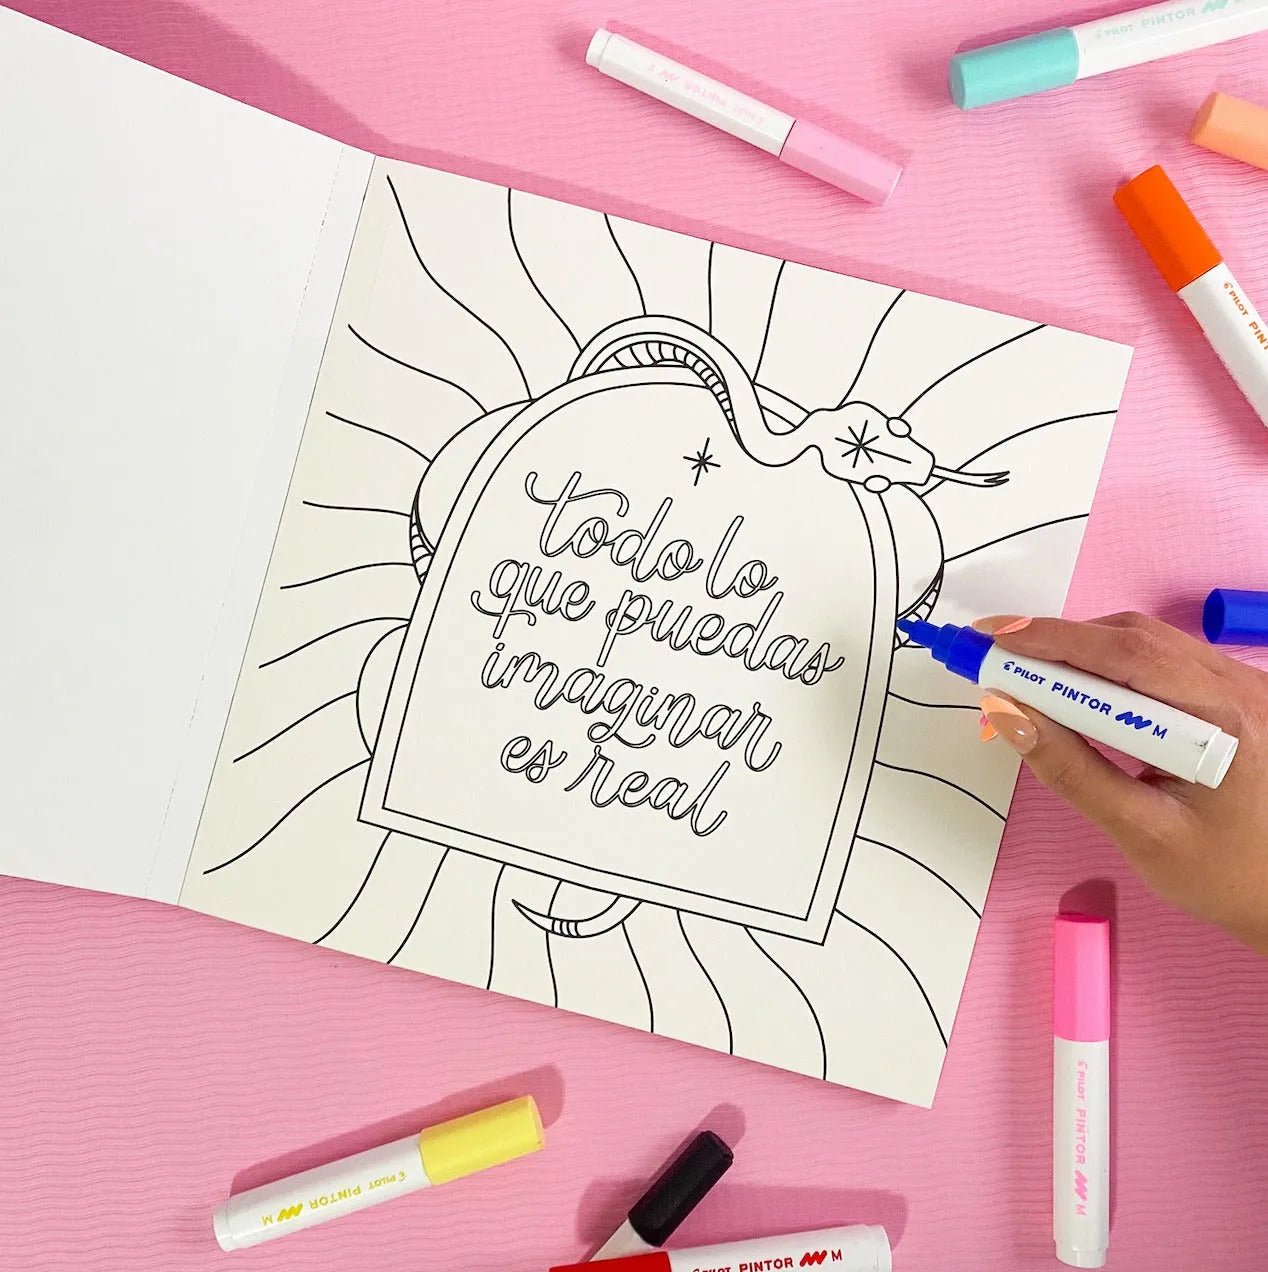 PILOT PINTOR
PILOT PINTOR
PILOT PINT
todo lo
que puedas
imaginar
es real
PILOT PINTOR M
PILOT PINTOR M
PILOT PINTOR M
PILOT PINTOR M